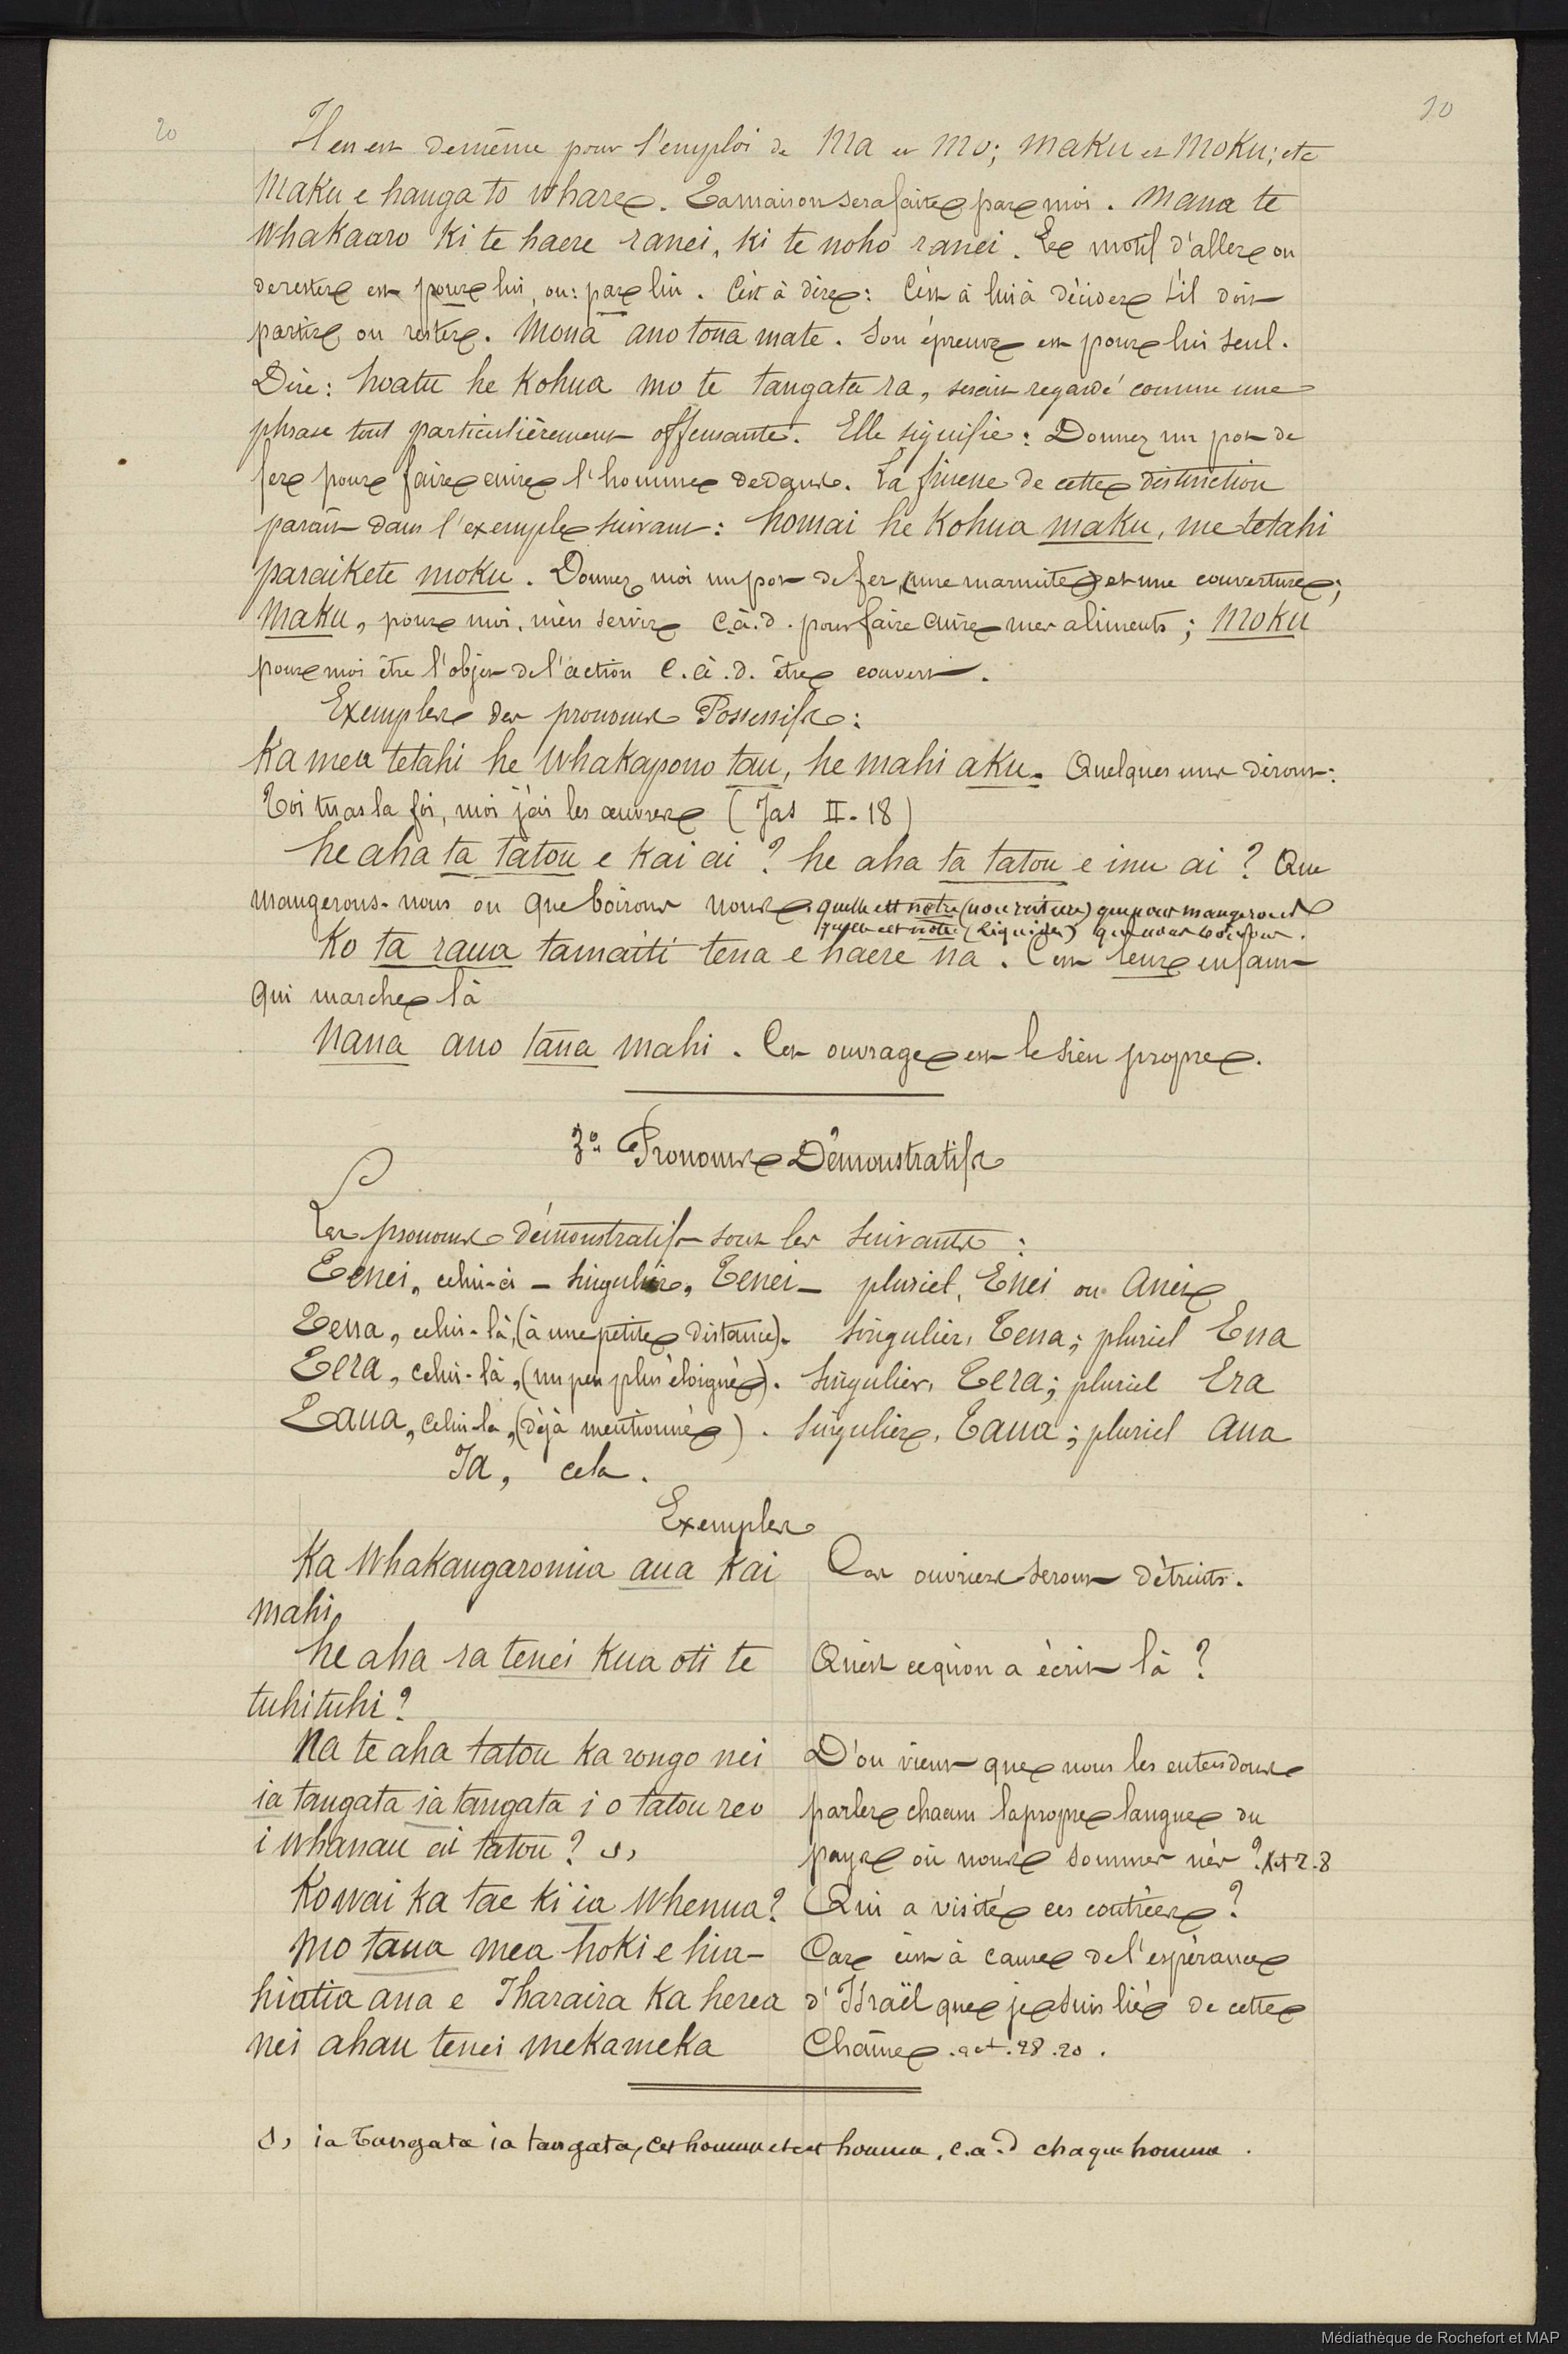 20
10
Il en est de même pour l'emploi de Ma et Mo; Maku et Moku; etc
Maku e hanga to whare. La maison sera faite par moi. Mana te
Whakaaro ki te haere ranei, ki te noho ranei. Le motif d'aller ou
de rester est pour lui, ou: par lui. C'est à dire: C'est à lui à décider s'il doit
partir ou rester. Mona ano tona mate. Son épreuve est pour lui seul.
Dire: hoatu he Kohua mo te tangata ra, serait regardé comme une
phrase tout particulièrement offensante. Elle signifie: Donnez un pot de
fer pour faire cuire l'homme dedans. La finesse de cette distinction
parait dans l'exemple suivant: homai he Kohua maku, me tetahi
paraikete moku. Donnez moi un pot de fer, (une marmite) et une couverture;
Maku, pour moi, m'en servir c.à.d. pour faire cuire mes aliments; Moku
pour moi être l'objet de l'action C.à.d. être couvert.
Exemples des pronoms Possessifs:
Ka mea tetahi he Whakapono tau, he mahi aku. Quelques uns diront:
Toi tu as la foi, moi j'ai les œuvres (Jas II-18)
he aha ta tatou e kai ai? he aha ta tatou e inu ai? Que
mangerons-nous ou que boirons nous. quelle est notre (nourriture) que nous mangerons
quelle est notre (liquide) que nous boirons.
Ko ta raua tamaiti tena e haere na. C'est leur enfant
qui marche là
Nana ano tana mahi. Cet ouvrage est le sien propre.
3º Pronoms Démonstratifs
Les pronoms démonstratifs sont les suivants:
Tenei, celui-ci - singulier, Tenei - pluriel, Enei ou Anei
Tena, celui-là, (à une petite distance). Singulier, Tena; pluriel Ena
Tera, celui-là, (un peu plus éloigné). Singulier, Tera; pluriel Era
Taua, celui-la, (déjà mentionné). Singulier, Taua; pluriel Aua
Ia, cela.
Exemples
Ka Whakangaromia aua kai
mahi
Ces ouvriers seront détruits.
he aha ra tenei kua oti te
tuhituhi?
Qu'est ce qu'on a écrit là?
Na te aha tatou ka rongo nei
ia tangata ia tangata i o tatou reo
i Whanau ai tatou? s,
D'ou vient que nous les entendons
parler chacun la propre langue du
pays où nous sommes nés? Act 2.8
Ko wai ka tae ki ia Whenua?
Qui a visité ces contrées?
Mo taua mea hoki e hia-
hiatia ana e Iharaira ka herea
nei ahau tenei mekameka
Car c'est à cause de l'espérance
d'Israël que je suis lié de cette
Chaîne. act. 28.20.
s, ia Tangata ia tangata, cet homme et cet homme, c.a.d chaque homme.
Médiathèque de Rochefort et MAP